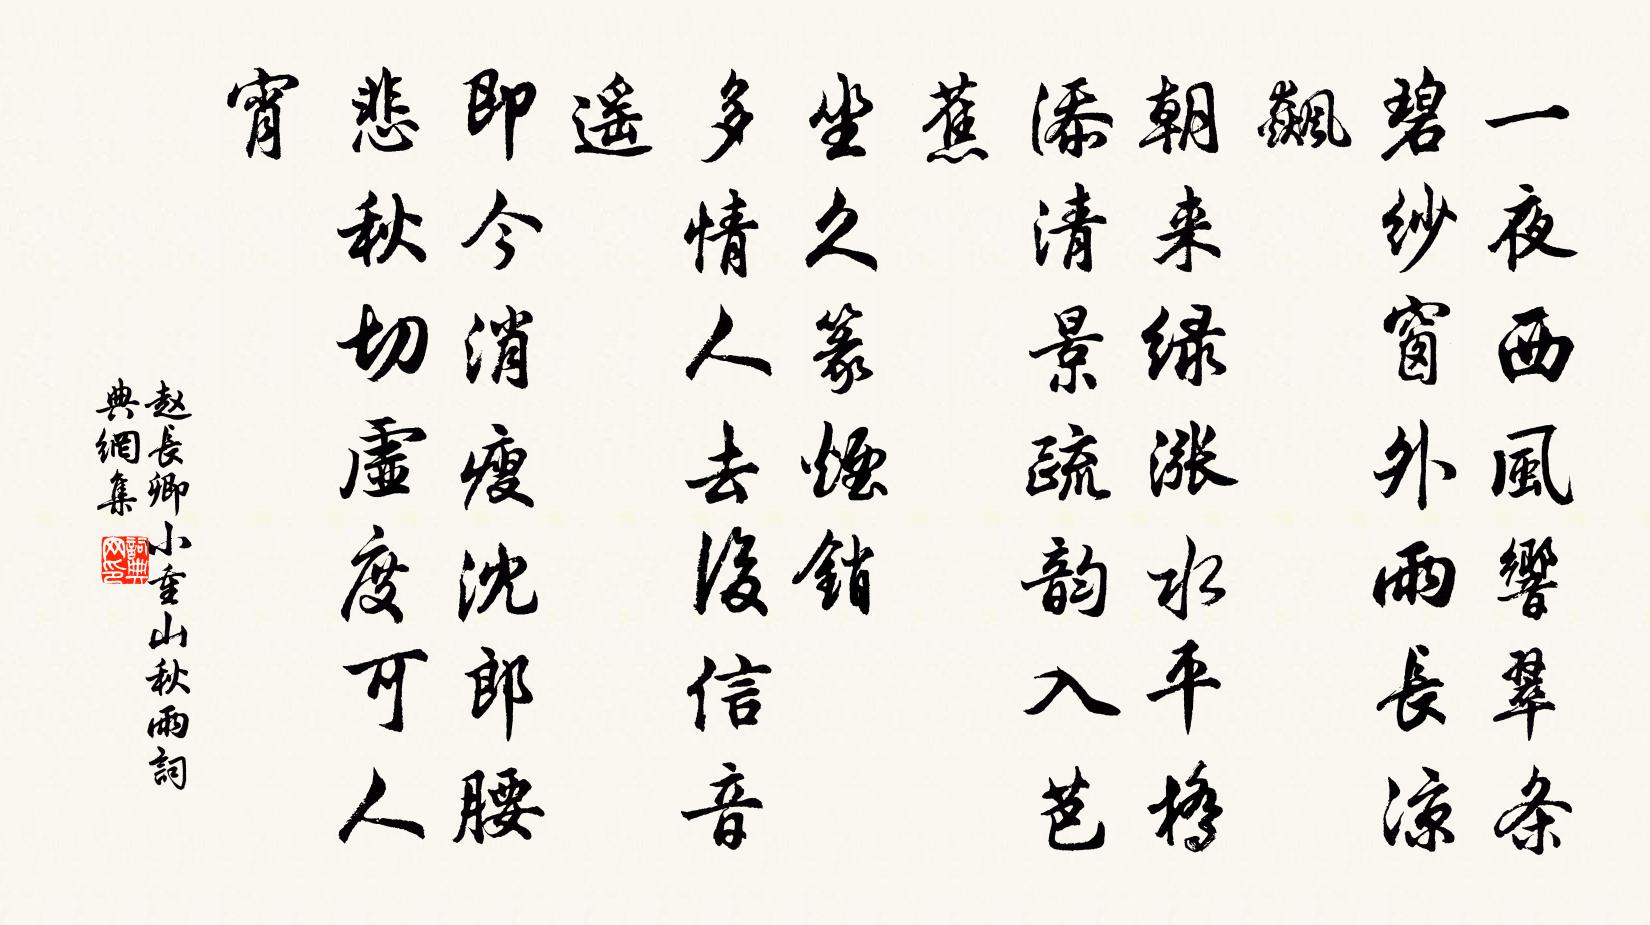 一夜西風響翠条
碧紗窗外雨長涼
飆
朝来绿漲水平橋
添清景疏韵入芭
蕉
坐久篆煙銷
多情人去後信音
遥
即今消瘦沈郎腰
悲秋切虚度可人
宵
赵長卿小重山秋雨詞
典網集
詞典
网印